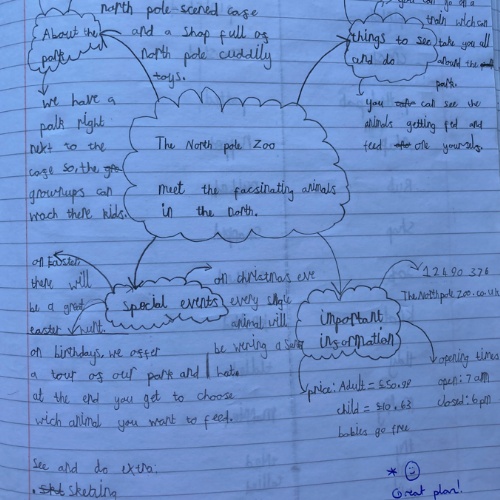 north pole-scened cage
and a shop full of
north pole cuddily
toys.
About the
park
we have a
park right
next to the
cage so, the
grownups can
wach there kids.
The North pole Zoo
meet the facsinating animals
in the North.
things to see
and do
you can go on a
train wich can
take you all
around the
park.
you can see the
animals getting fed and
feed one yourself.
Special events
on Easter
there will
be a great
easter hunt.
on christmas eve
every single
animal will
be wering a
hat.
on birthdays, we offer
a tour of our park and
at the end you get to choose
wich animal you want to feed.
important
information
12490 326
TheNorthpoleZoo.co.uk
opening times
open: 7am
closed: 6pm
price: Adult = £50.98
child = £10.63
babies go free
see and do extra:
. sketing
* Great plan!